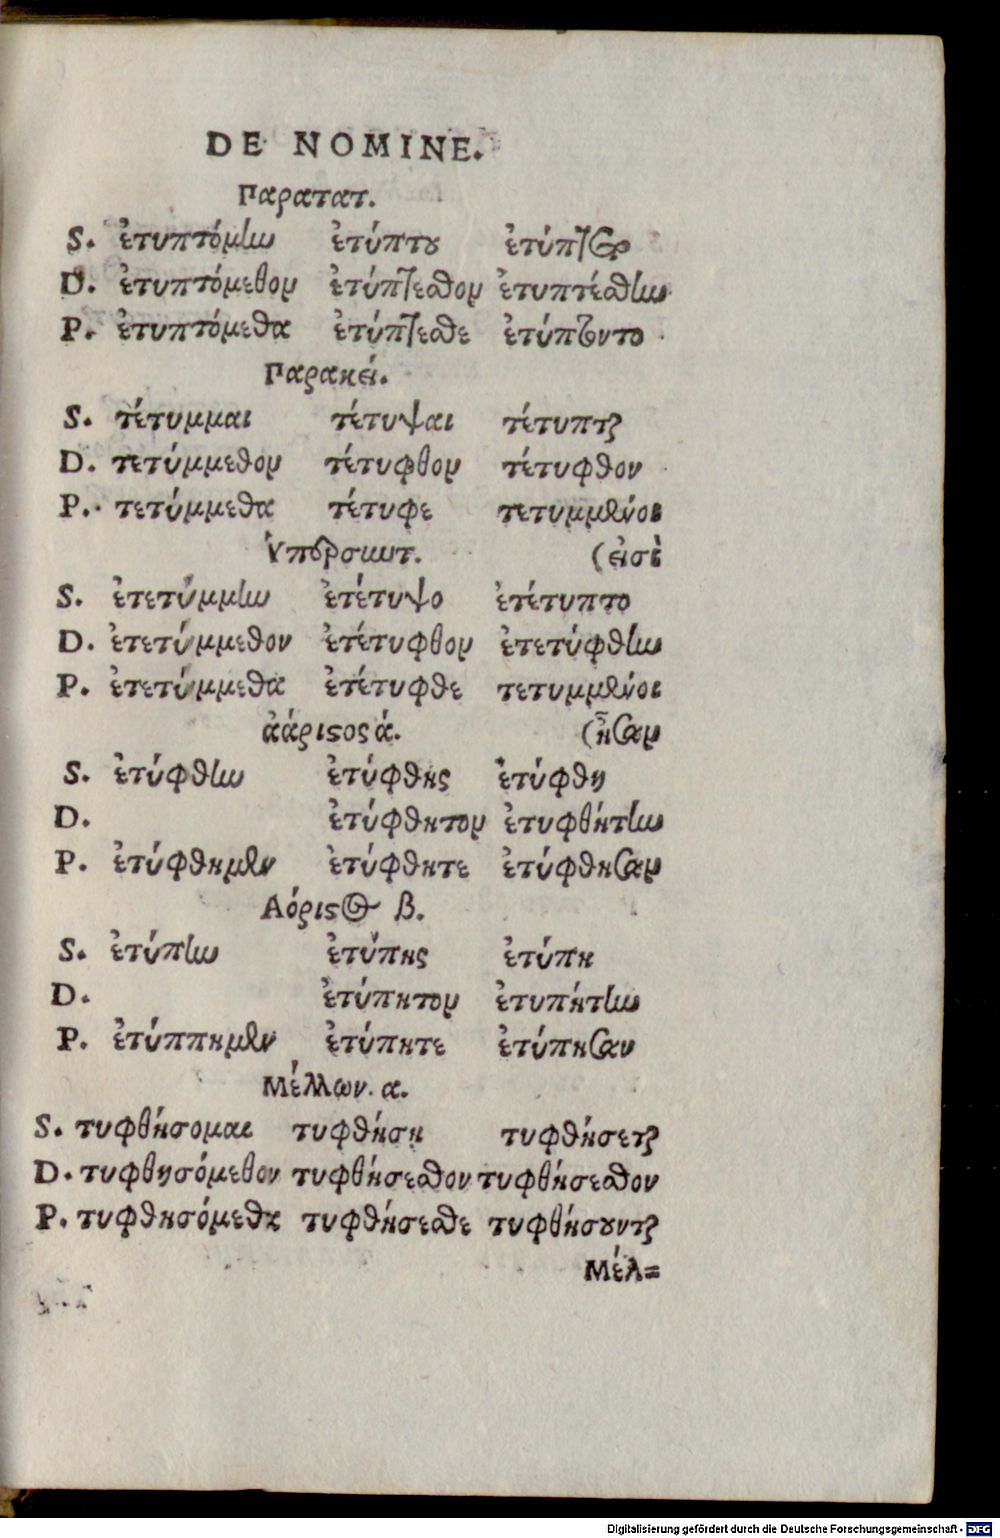 DE NOMINE.
Παρατατ.
S. ἐτυπτόμην ἐτύπτου ἐτύπτετο
D. ἐτυπτόμεθον ἐτύπτεσθον ἐτυπτέσθην
P. ἐτυπτόμεθα ἐτύπτεσθε ἐτύπτοντο
Παρακεί.
S. τέτυμμαι τέτυψαι τέτυπται
D. τετύμμεθον τέτυφθον τέτυφθον
P. τετύμμεθα τέτυφε τετυμμένοι
Ὑπερσιωτ. (εἰσὶ
S. ἐτετύμμην ἐτέτυψο ἐτέτυπτο
D. ἐτετύμμεθον ἐτέτυφθον ἐτετύφθην
P. ἐτετύμμεθα ἐτέτυφθε τετυμμένοι
ἀάριστος ά. (ἦσαν
S. ἐτύφθην ἐτύφθης ἐτύφθη
D. ἐτύφθητον ἐτυφθήτην
P. ἐτύφθημεν ἐτύφθητε ἐτύφθησαν
Αόριστος β.
S. ἐτύπην ἐτύπης ἐτύπη
D. ἐτύπητον ἐτυπήτην
P. ἐτύππημεν ἐτύπητε ἐτύπησαν
Μέλλων. α.
S. τυφθήσομαι τυφθήση τυφθήσεται
D. τυφθησόμεθον τυφθήσεσθον τυφθήσεσθον
P. τυφθησόμεθα τυφθήσεσθε τυφθήσουνται
Μέλ=
Digitalisierung gefördert durch die Deutsche Forschungsgemeinschaft - DFG